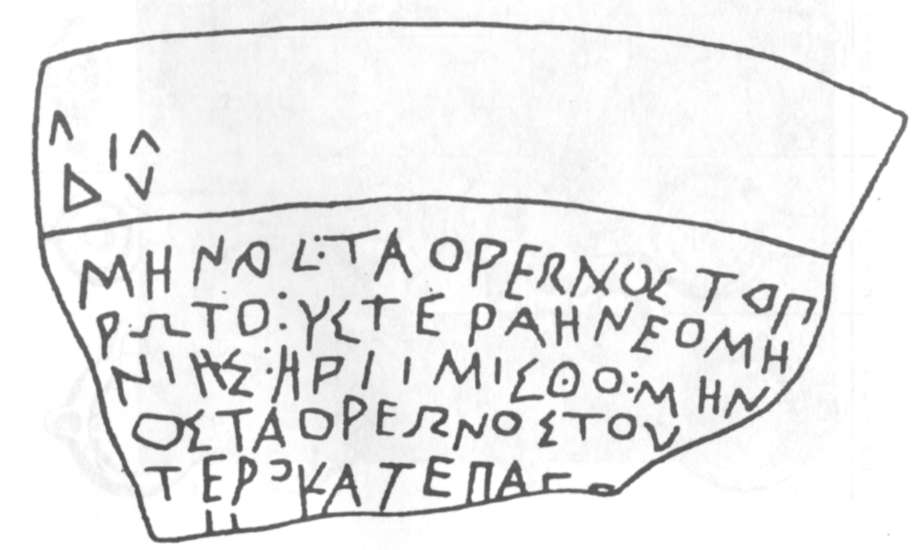 ΜΗΝΟΣ:ΤΑΟΡΕΩΝΟΣΤΟΠ
ΡΩΤΟ:ΥΣΤΕΡΑΗΝΕΟΜΗ
ΝΙΗΣ:ΗΡΙΙΜΙΣΘΟ:ΜΗΝ
ΟΣΤΑΟΡΕΩΝΟΣΤΟΥ
ΤΕΡΟΚΑΤΕΠΑ